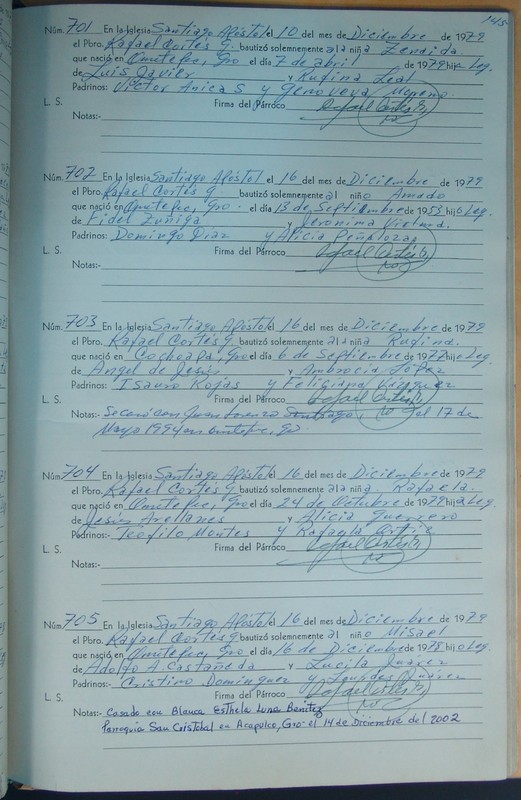 145
Núm. 701 En la Iglesia Santiago Apóstol el 10 del mes de Diciembre de 1979
el Pbro. Rafael Cortés G. bautizó solemnemente a la niña Zendida
que nació en Ometepec, Gro el día 7 de abril de 1979 hija Leg.
de Luis Javier y Rufina Leal
Padrinos: Victor Anica S y Genoveva Moreno
L. S. Firma del Párroco Rafael Cortés G.
Notas:
Núm. 702 En la Iglesia Santiago Apóstol el 16 del mes de Diciembre de 1979
el Pbro. Rafael Cortés G bautizó solemnemente al niño Amado
que nació en Ometepec, Gro. el día 13 de Septiembre de 1953 hijo Leg.
de Fidel Zuñiga y Jeronima
Padrinos: Domingo Díaz y Alicia Peñaloza
L. S. Firma del Párroco Rafael Cortés G.
Notas:-
Núm. 703 En la Iglesia Santiago Apóstol el 16 del mes de Diciembre de 1979
el Pbro. Rafael Cortés G. bautizó solemnemente a la niña Rufina.
que nació en Cochoapa, Gro el día 6 de Septiembre de 1977 hija Leg.
de Angel de Jesús y Ambrocia López
Padrinos: Isauro Rojas y Feliciana Vázquez
L. S. Firma del Párroco Rafael Cortés G.
Notas:- Se casó con Juan Lorenzo Santiago, el 17 de
Mayo 1994 en Ometepec, Gro
Núm. 704 En la Iglesia Santiago Apóstol el 16 del mes de Diciembre de 1979
el Pbro. Rafael Cortés G. bautizó solemnemente a la niña Rafaela.
que nació en Ometepec, Gro el día 24 de Octubre de 1979 hija Leg.
de Jesús Arellanes y Alicia Guerrero
Padrinos:- Teofilo Montes y Rafaela Ortiz
L. S. Firma del Párroco Rafael Cortés G.
Notas:-
Núm. 705 En la Iglesia Santiago Apóstol el 16 del mes de Diciembre de 1979
el Pbro. Rafael Cortés G bautizó solemnemente al niño Misael
que nació en Ometepec, Gro el día 16 de Diciembre de 1978 hijo Leg.
de Adolfo A Castañeda y Lucila Juárez
Padrinos:- Cristino Dominguez y Lourdes Juárez
L. S. Firma del Párroco Rafael Cortés G.
Notas:- Casado con Blanca Esthela Luna Benitez
Parroquia San Cristobal en Acapulco, Gro. el 14 de Diciembre del 2002